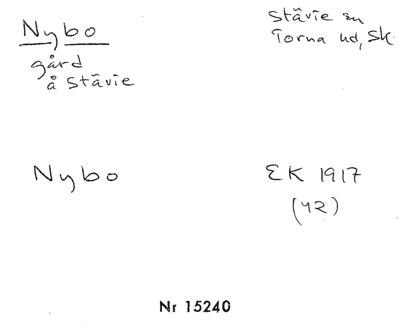 Nybo
gård
å Stävie
Stävie sn
Torna hd, Sk.
Nybo
EK 1917
(42)
Nr 15240